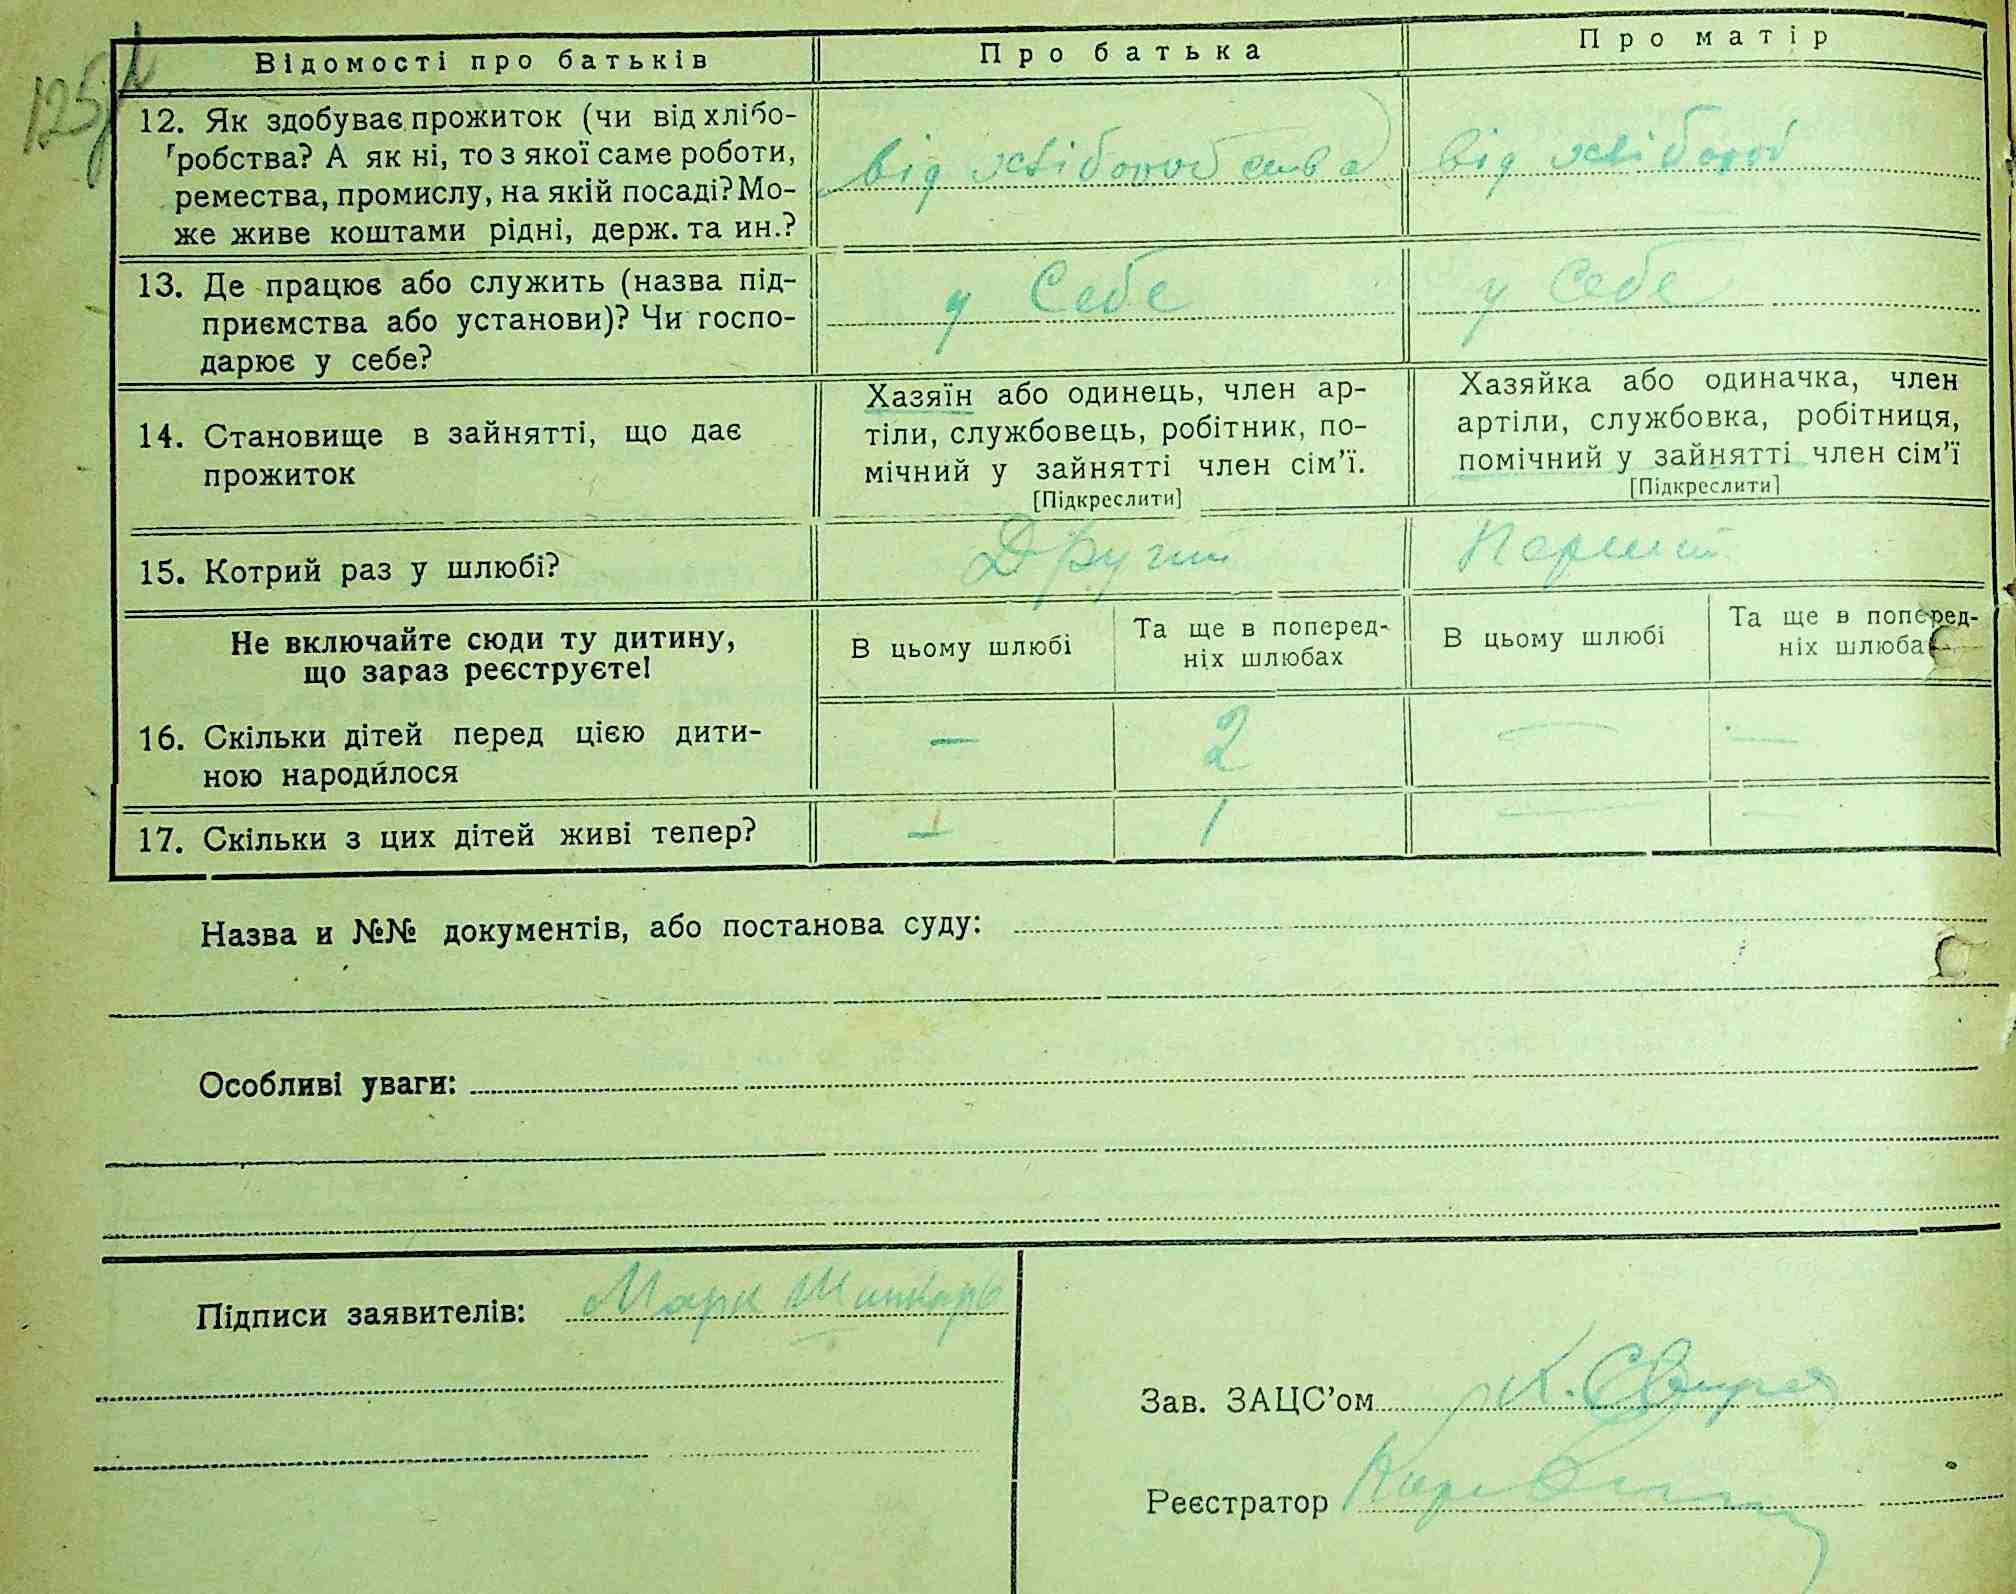 Відомості про батьків
Про батька
Про матір
12. Як здобуває прожиток (чи від хлібо-
робства? А як ні, то з якої саме роботи,
ремества, промислу, на якій посаді? Мо-
же живе коштами рідні, держ. та ин.?
від хліборобства
від хлібороб
13. Де працює або служить (назва під-
приємства або установи)? Чи госпо-
дарює у себе?
у себе
у себе
14. Становище в зайнятті, що дає
прожиток
Хазяїн або одинець, член ар-
тіли, службовець, робітник, по-
мічний у зайнятті член сім'ї.
[Підкреслити]
Хазяйка або одиначка, член
артіли, службовка, робітниця,
помічний у зайнятті член сім'ї
[Підкреслити]
15. Котрий раз у шлюбі?
Другий
Перший
Не включайте сюди ту дитину,
що зараз реєструєте!
В цьому шлюбі
Та ще в поперед-
ніх шлюбах
В цьому шлюбі
Та ще в поперед-
ніх шлюба
16. Скільки дітей перед цією дити-
ною народилося
—
2
—
—
17. Скільки з цих дітей живі тепер?
—
1
—
—
Назва и №№ документів, або постанова суду:
Особливі уваги:
Підписи заявителів: Марк
Зав. ЗАЦС'ом К. Свиря
Реєстратор